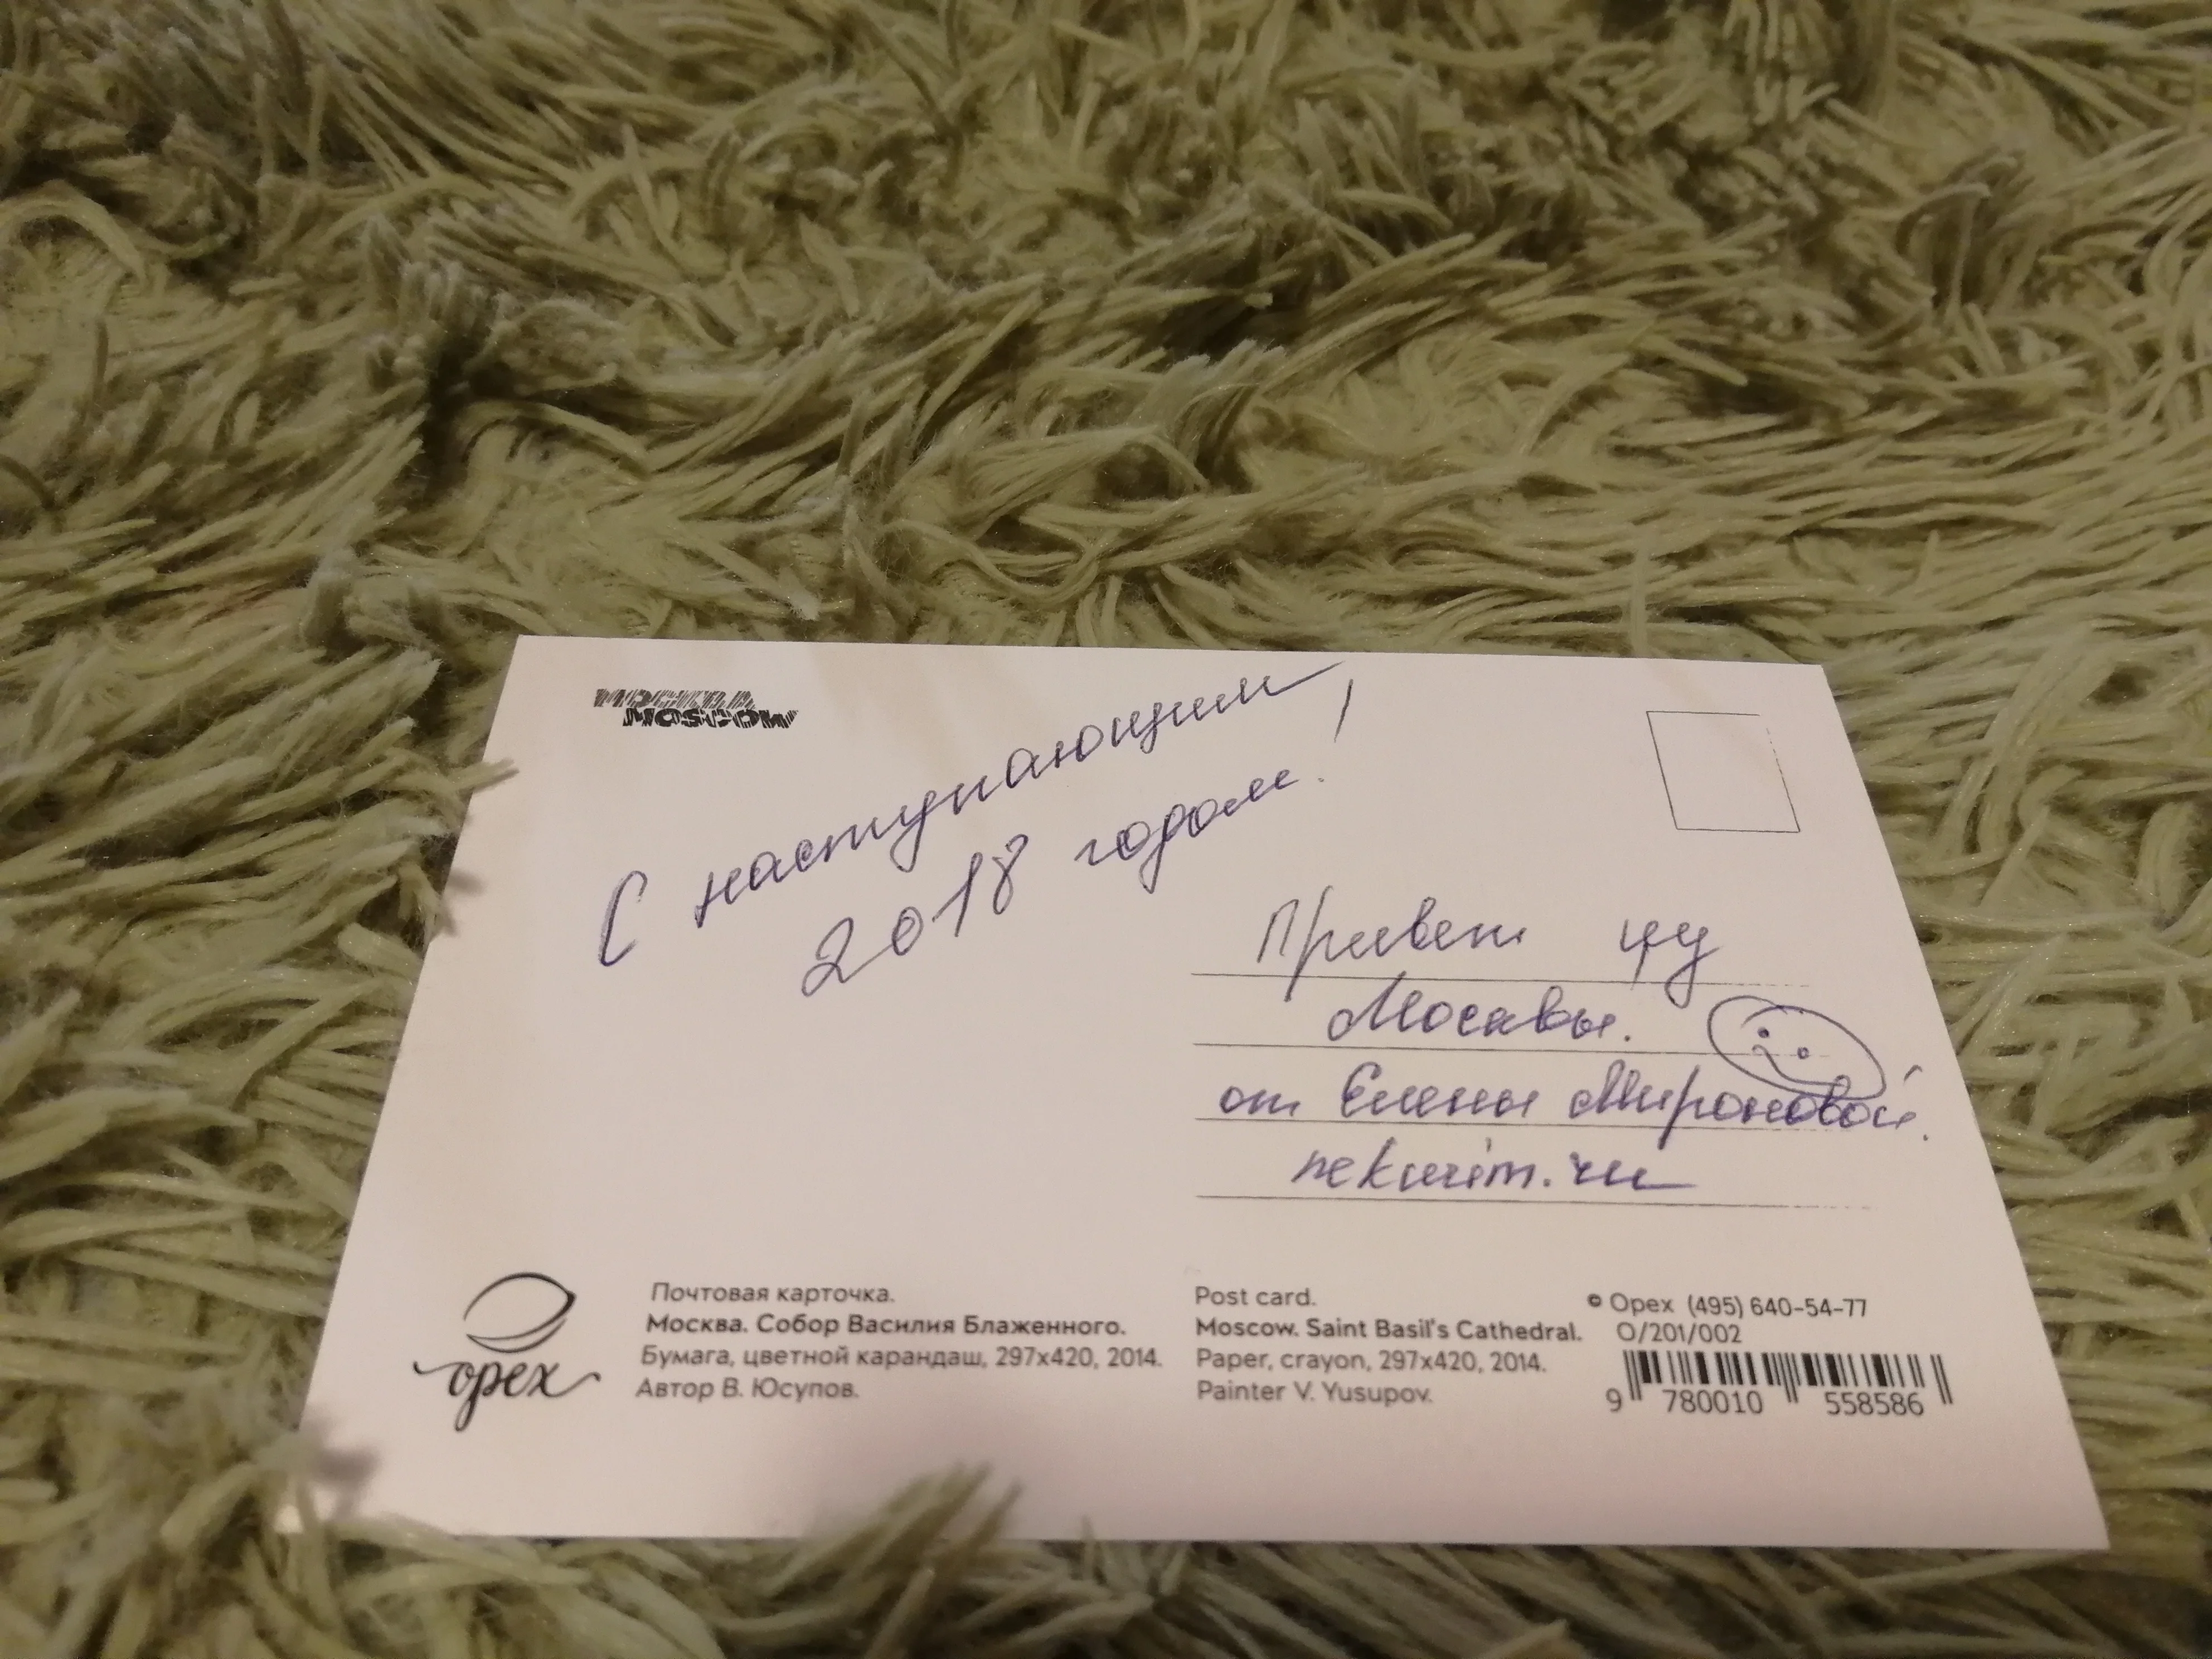 МОСКВА
MOSCOW
С наступающим
2018 годом!
Привет
Москвы.
от Елены Мироновой.
nekurim.ru
орех
Почтовая карточка.
Москва. Собор Василия Блаженного.
Бумага, цветной карандаш, 297x420, 2014.
Автор В. Юсупов.
Post card.
Moscow. Saint Basil's Cathedral.
Paper, crayon, 297x420, 2014.
Painter V. Yusupov.
© Орех (495) 640-54-77
O/201/002
9 780010 558586